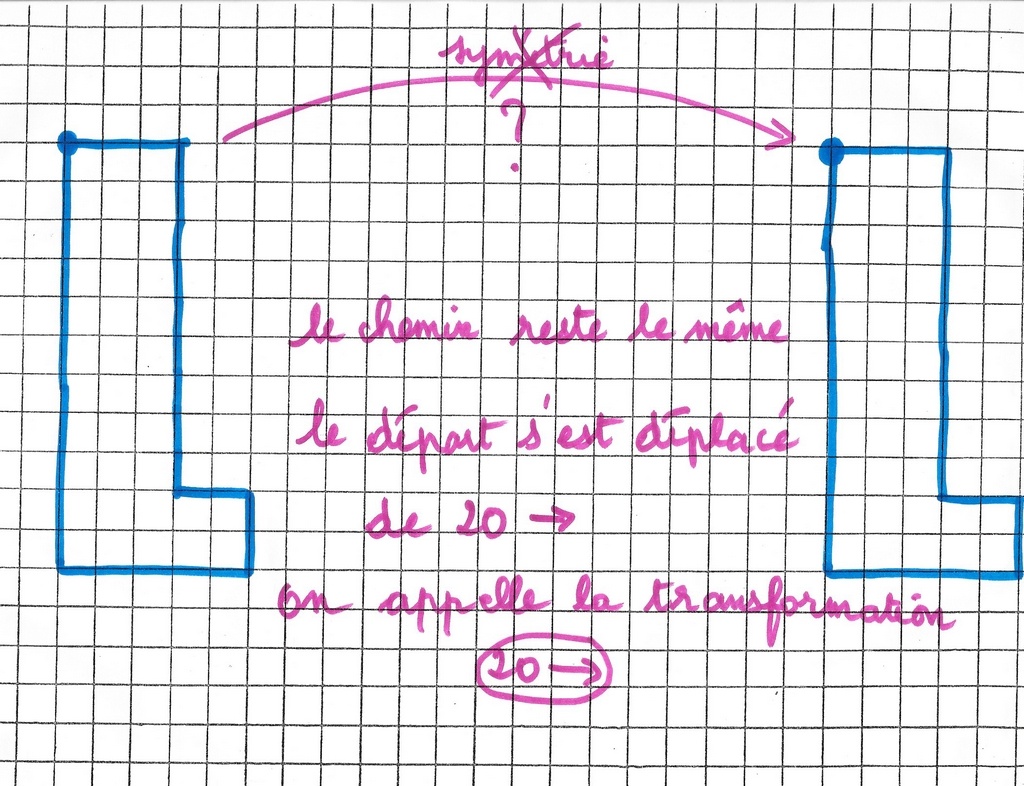 symétrie
?
le chemin reste le même
le départ s'est déplacé
de 20 →
on appelle la transformation
20 →